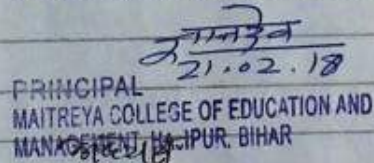 21.02.18
PRINCIPAL
MAITREYA COLLEGE OF EDUCATION AND
MANAGEMENT, HAJIPUR, BIHAR